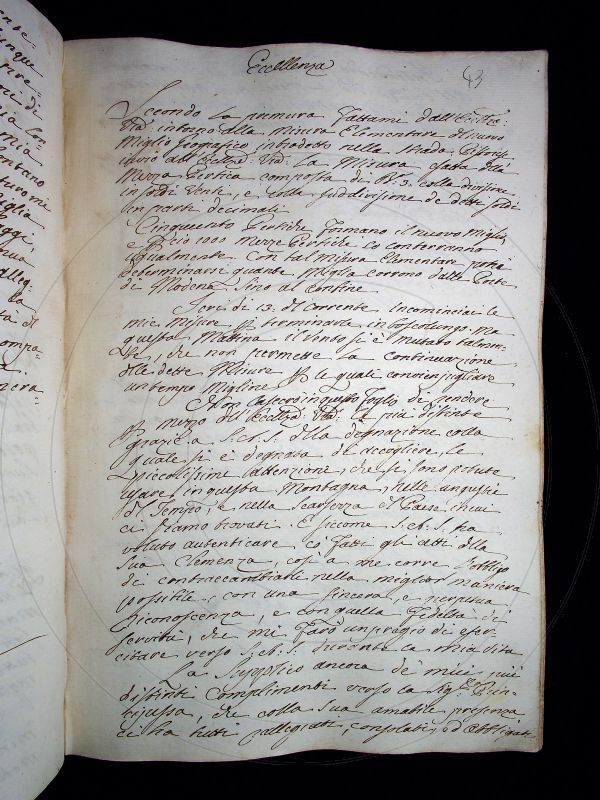 Eccellenza
43
Secondo la premura fattami dall'Eccell:ᵃ
Vrã intorno alla misura Elementare del nuovo
Miglio geografico introdotto nella Strada,
invio all' Eccellzã Vrã. La Misura esatta della
Mezza Pertica composta di B:ᵃ 3. colla divisione
in soldi venti, e colla suddivisione de detti soldi
in parti decimali.
Cinquecento Pertiche formano il nuovo Miglio,
e perciò 1000 mezze Pertiche lo conterranno
ugualmente. Con tal misura Elementare potrà
determinarsi quante Miglia corrono dalle Porte
di Modena sino al Confine.
Jeri di 13. del corrente incominciai le
mie misure per terminarle in ma
questa Mattina il vento si è mutato talmen-
te, che non permette la continuazione
delle dette Misure per le quali convien pigliare
un tempo migliore.
Non lascio in questo foglio di rendere
per mezzo dell' Eccellzã Vrã. le più distinte
grazie a S.A.S. della degnazione colla
quale si è degnata di accogliere, le
piccolissime attenzione, che si sono potute
usare in questa Montagna, nelle angustie
di Tempo, e nella scarsezza del Paese in cui
ci siamo trovati. E siccome S.A.S. ha
voluto autenticare co' fatti gli atti della
sua Clemenza, così a me corre l'obbligo
di contraccambiarle nella miglior maniera
possibile, con una sincera, e perpetua
riconoscenza, e con quella fedeltà di
servitù, che mi farò un pregio di eser-
citare verso S.A.S. durante la mia vita
La supplico ancora de' miei più
distinti Complimenti verso la Sig:ʳᵃ Prin-
cipessa, che colla sua amabile presenza
ci ha tutti rallegrati, consolati, ed obbligati